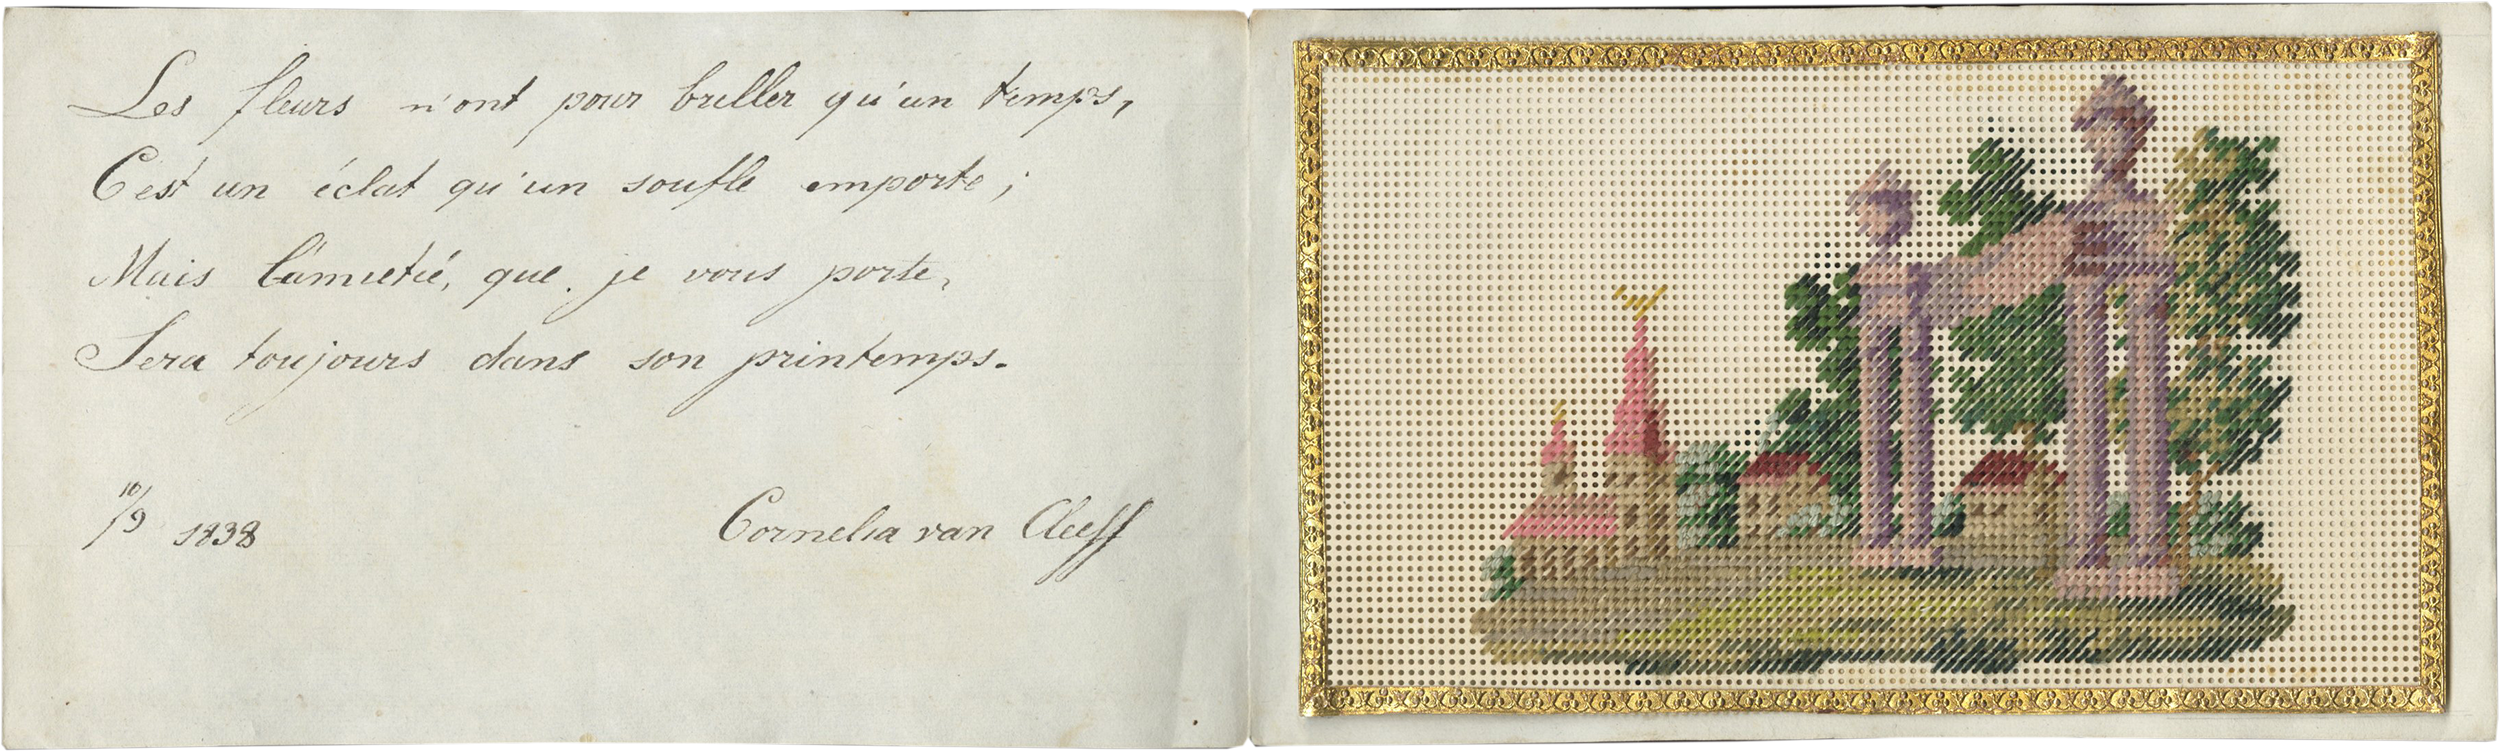 Les fleurs n'ont pour briller qu'un temps,
C'est un éclat qu'un soufle emporte;
Mais l'amietié, que je vous porte,
Sera toujours dans son printemps.
10/9 1838 Cornelia van Cleeff